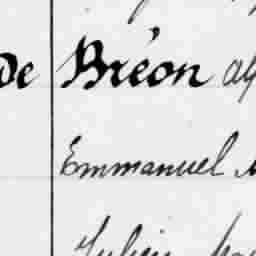 de Bréon
Emmanuel
Julien